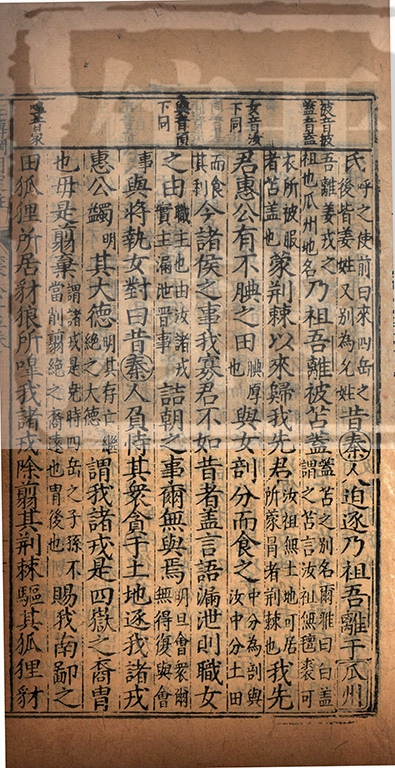 被音披
蓋音盍
女音汝
下同
與音預
下同
嘷音豪
氏呼之使前曰來四岳之後皆姜姓又別為允姓昔秦人迫逐乃祖吾離于瓜州
吾離姜戎之祖也瓜州地名乃祖吾離被苫蓋蓋苫之別名爾雅曰白蓋謂之苫言汝祖無氊裘可
衣所被服者苫蓋也蒙荊棘以來歸我先君汝祖無土地可居所蒙冒者荊棘也我先
君惠公有不腆之田腆厚也與女剖分而食之中分為剖與汝中分土田
而食其利今諸侯之事我寡君不如昔者蓋言語漏泄則職女
之由職主也由汝諸戎實主漏泄晉事詰朝之事爾無與焉明旦會衆爾無得復與會
事與將執女對曰昔秦人負恃其衆貪于土地逐我諸戎
惠公蠲明其大德明其存亡繼絕之大德謂我諸戎是四嶽之裔胄
也毋是翦棄謂諸戎是堯時四岳之子孫不當削翦絕之裔遠也胄後也賜我南鄙之
田狐狸所居豺狼所嘷我諸戎除翦其荊棘驅其狐狸豺